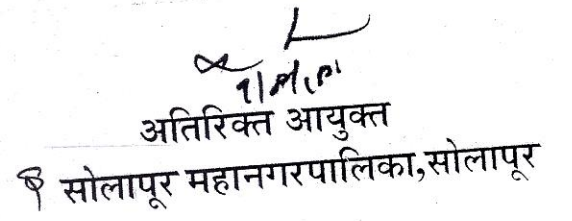 अतिरिक्त आयुक्त
सोलापूर महानगरपालिका,सोलापूर